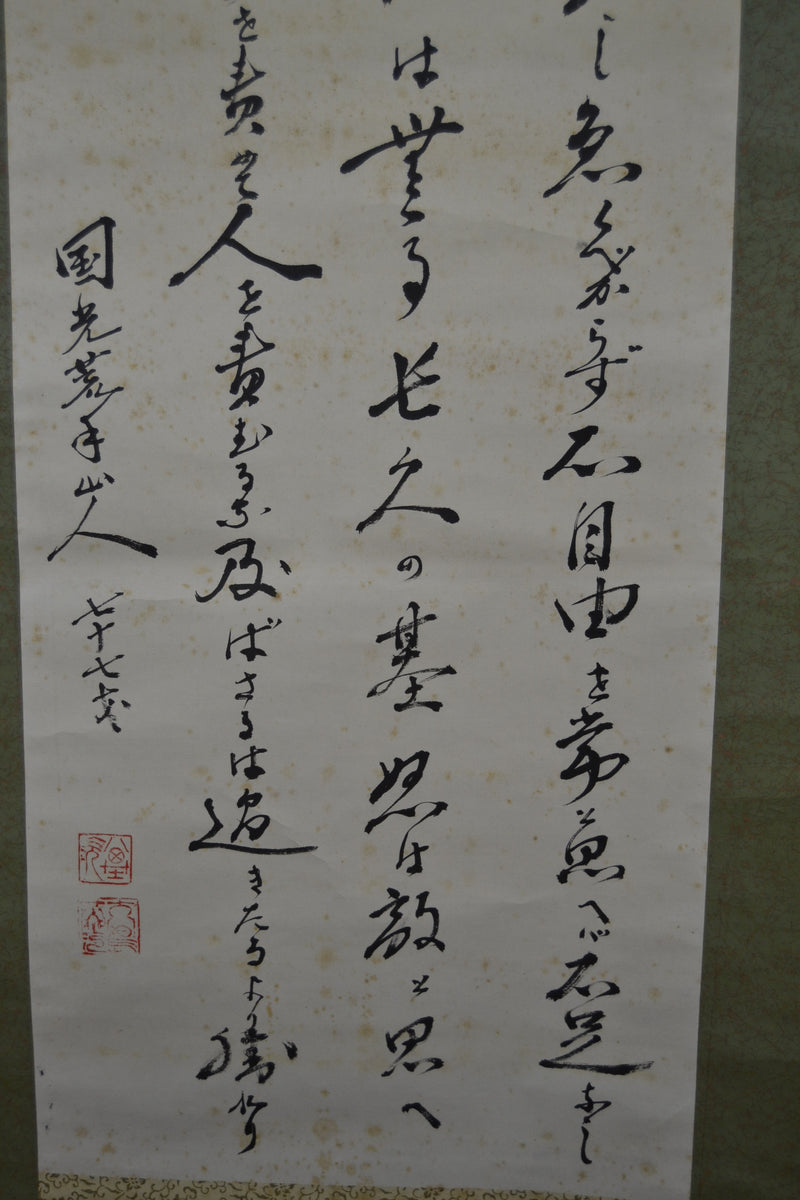 し急ぐべからず不自由を常と思へバ不足なし
は無事長久の基怒は敵と思へ
を責めて人を責むるな及ばざるは過きたるより勝れり
国光 山人 七十七